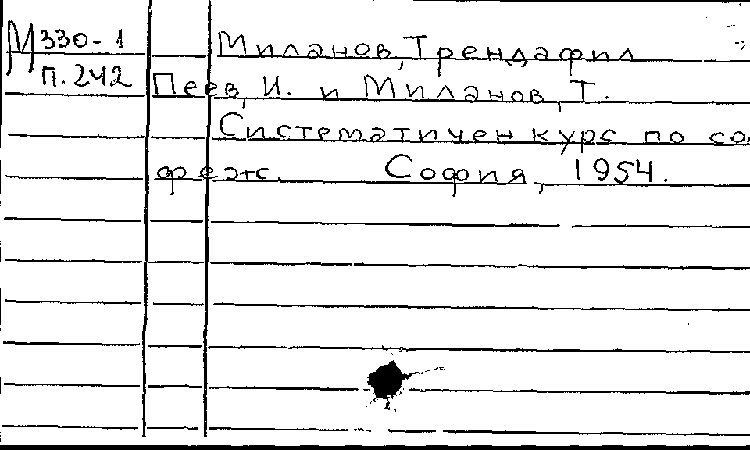 М330-1 Миланов, Трендафил
П.242 Пеев, И. и Миланов, Т.
Систематичен курс по со
фреж. София, 1954.